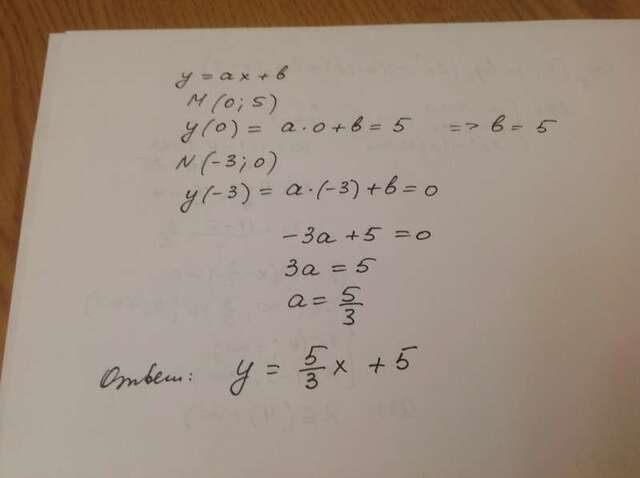 y = ax + в
M (0; 5)
y(0) = a·0 + в = 5 => в = 5
N (-3; 0)
y(-3) = a·(-3) + в = 0
-3a + 5 = 0
3a = 5
a = 5/3
Ответ: y = 5/3 x + 5